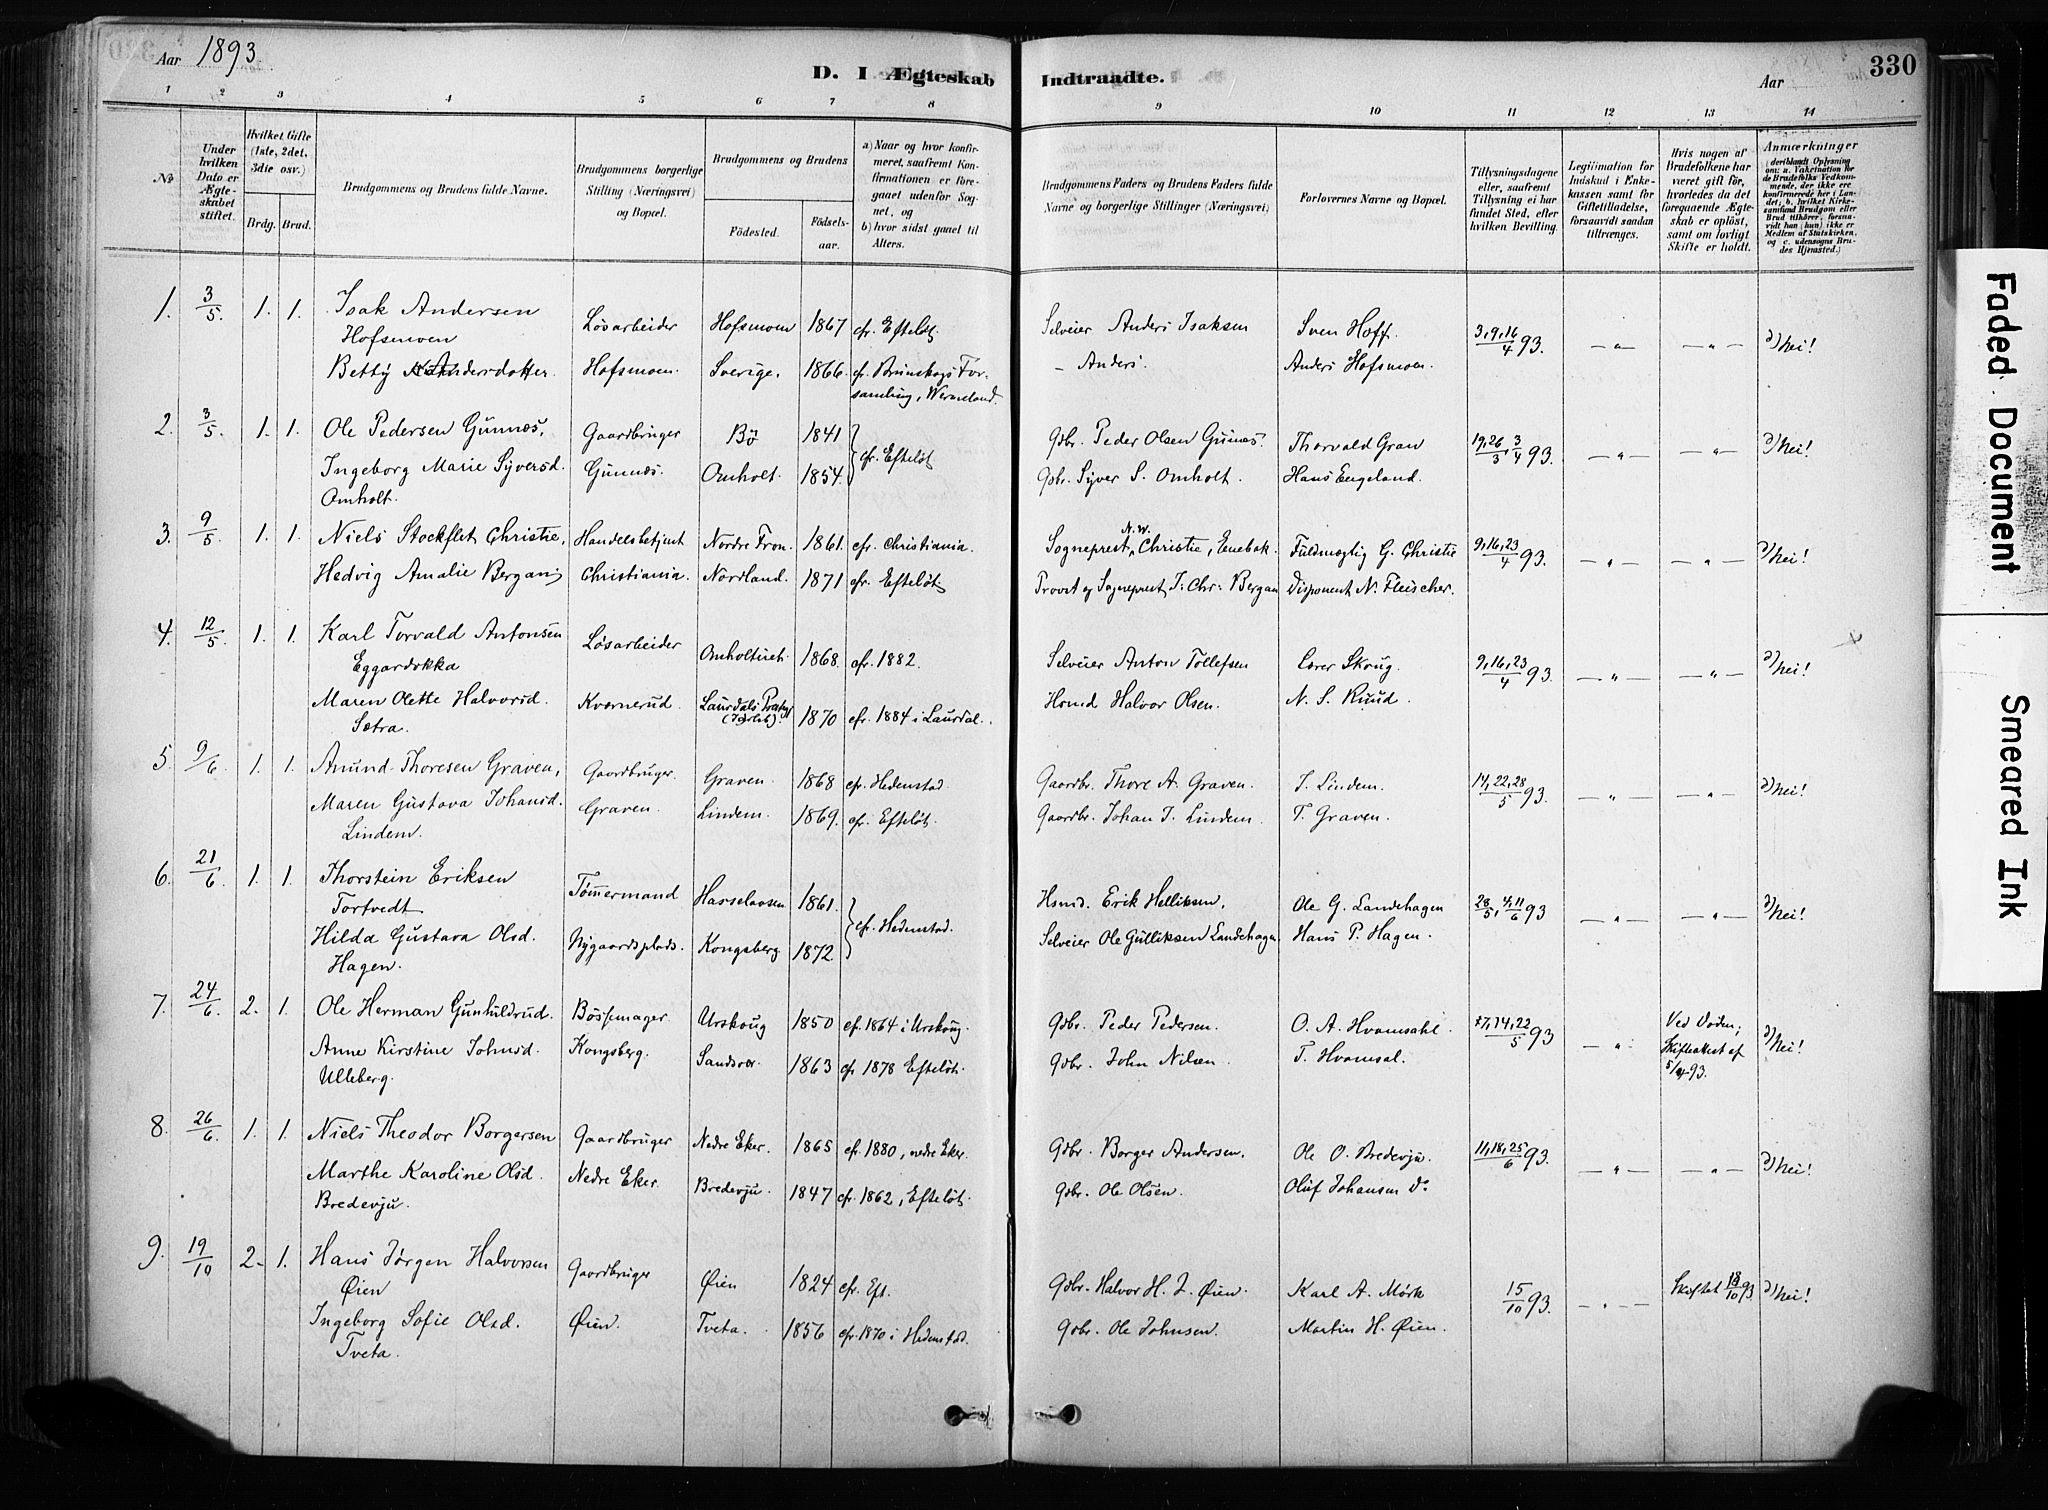 Aar 1893.
D. I Ægteskab Indtraadte.
Aar
330
1 2 3 4 5 6 7 8 9 10 11 12 13 14
No
Under hvilken Dato er Ægteskabet stiftet.
Hvilket Gifte (1ste, 2det, 3die osv.)
Brdg. Brud.
Brudgommens og Brudens fulde Navne.
Brudgommens borgerlige Stilling (Næringsvei) og Bopæl.
Brudgommens og Brudens
Fødested.
Fødselsaar.
a) Naar og hvor konfirmeret, saafremt Konfirmationen er foregaaet udenfor Sognet, og
b) hvor sidst gaaet til Alters.
Brudgommens Faders og Brudens Faders fulde Navne og borgerlige Stillinger (Næringsvei)
Forlovernes Navne og Bopæl.
Tillysningsdagene eller, saafremt Tillysning ei har fundet Sted, efter hvilken Bevilling.
Legitimation for Indskud i Enkekassen samt for Giftetilladelse, forsaavidt saadan tiltrænges.
Hvis nogen af Brudefolkene har været gift før, hvorledes da det foregaaende Ægteskab er opløst, samt om lovligt Skifte er holdt.
Anmærkninger (deriblandt Oplysning om: a. Vakcination for de Brudefolks Vedkommende, der ikke ere konfirmerede her i Landet; b. hvilket Kirkesamfund Brudgom eller Brud tilhører, forsaavidt han (hun) ikke er Medlem af Statskirken, og c. udensogns Brudes Hjemsted.)
1. 3/5. 1. 1. Isak Andersen Løsarbeider Hofsmoen 1867 cfr. Efteløt Selveier Anders Isaksen Sven Hoff. 3,9,16/4 93. —„— —„— d) nei!
Hofsmoen
Betty Andersdotter. Hofsmoen. Sverige. 1866. cfr. Brunskogs For- — Anders. Anders Hofsmoen.
samling, Wermeland.
2. 3/5. 1. 1. Ole Pedersen Gunnes, Gaardbruger Bö 1841 cfr. Efteløt Gbr. Peder Olsen Gunnes. Thorvald Gran 19,26/3, 3/4 93. —„— —„— d) nei!
Ingeborg Marie Syversd. Gunnes. Omholt. 1854. Gbr. Syver S. Omholt. Hans Engeland.
Omholt.
3. 9/5. 1. 1. Niels Stockflet Christie, Handelsbetjent Nordre Fron. 1861. cfr. Christiania. Sogneprest N. W. Christie, Enebak. Fuldmægtig G. Christie 9,16,23/4 93. —„— —„— d) nei!
Hedvig Amalie Bergan. Christiania. Nordland. 1871 cfr. Efteløt. Provst og Sogneprest J. Chr. Bergan Disponent N. Fleischer.
4. 12/5. 1. 1. Karl Torvald Antonsen Løsarbeider Omholteiet. 1868. cfr. 1882. Selveier Anton Tollefsen Lærer Skoug. 9,16,23/4 93. —„— —„— d) nei!
Eggardokka
Maren Olette Halvorsd. Kværnerud. Laurdals 1870 cfr. 1884 i Laurdal. Hsmd Halvor Olsen. N. S. Ruud.
Sætra.
5. 9/6. 1. 1. Amund Thoresen Graven, Gaardbruger. Graven. 1868 cfr. Hedenstad. Gaardbr. Thore A. Graven. J. Lindem. 14,22,28/5 93. —„— —„— d) nei!
Maren Gustava Johansd. Graven. Lindem. 1869. cfr. Efteløt. Gaardbr. Johan J. Lindem. T. Graven.
Lindem.
6. 21/6. 1. 1. Thorstein Eriksen Tømmermand Hasselaasen 1861. cfr. Hedenstad. Hsmd. Erik Helliksen. Ole G. Landehagen 28/5, 4,11/6 93 —„— —„— d) nei!
Tortvedt
Hilda Gustava Olsd. Nygaardsplads. Kongsberg. 1872. Selveier Ole Gulliksen Landehagen. Hans P. Hagen.
Hagen.
7. 24/6. 2. 1. Ole Herman Gunhildrud. Bøssemager. Urskoug 1850 cfr. 1864 i Urskoug. Gbr. Peder Pedersen. O. A. Hvamsahl. 7,14,22/5 93 —„— Ved Døden; d) nei!
Anne Kirstine Johnsd. Kongsberg. Sandsvær. 1863 cfr. 1878 Efteløt. Gbr. John Nilsen. T. Hvamsal. Skifteattest af
Ulleberg. 5/4 93.
8. 26/6. 1. 1. Niels Theodor Borgersen Gaardbruger Nedre Eker. 1865 cfr. 1880, nedre Eker. Gbr. Borger Andersen. Ole O. Bredevju. 11,18,25/6 93. —„— —„— d) nei!
Marthe Karoline Olsd. Nedre Eker. Bredevju. 1847 cfr. 1862, Efteløt. Gbr. Ole Olsen. Oluf Johansen do
Bredevju.
9. 19/10 2. 1. Hans Jørgen Halvorsen Gaardbruger Øien 1824 cfr. Eft. Gbr. Halvor H. J. Øien. Karl A. Mørk 15/10 93. —„— Skiftet 18/10 93. d) nei!
Øien
Ingeborg Sofie Olsd. Øien. Tveta. 1856 cfr. 1870 i Hedenstad. Gbr. Ole Johnsen. Martin H. Øien.
Tveta.
Faded Document
Smeared Ink